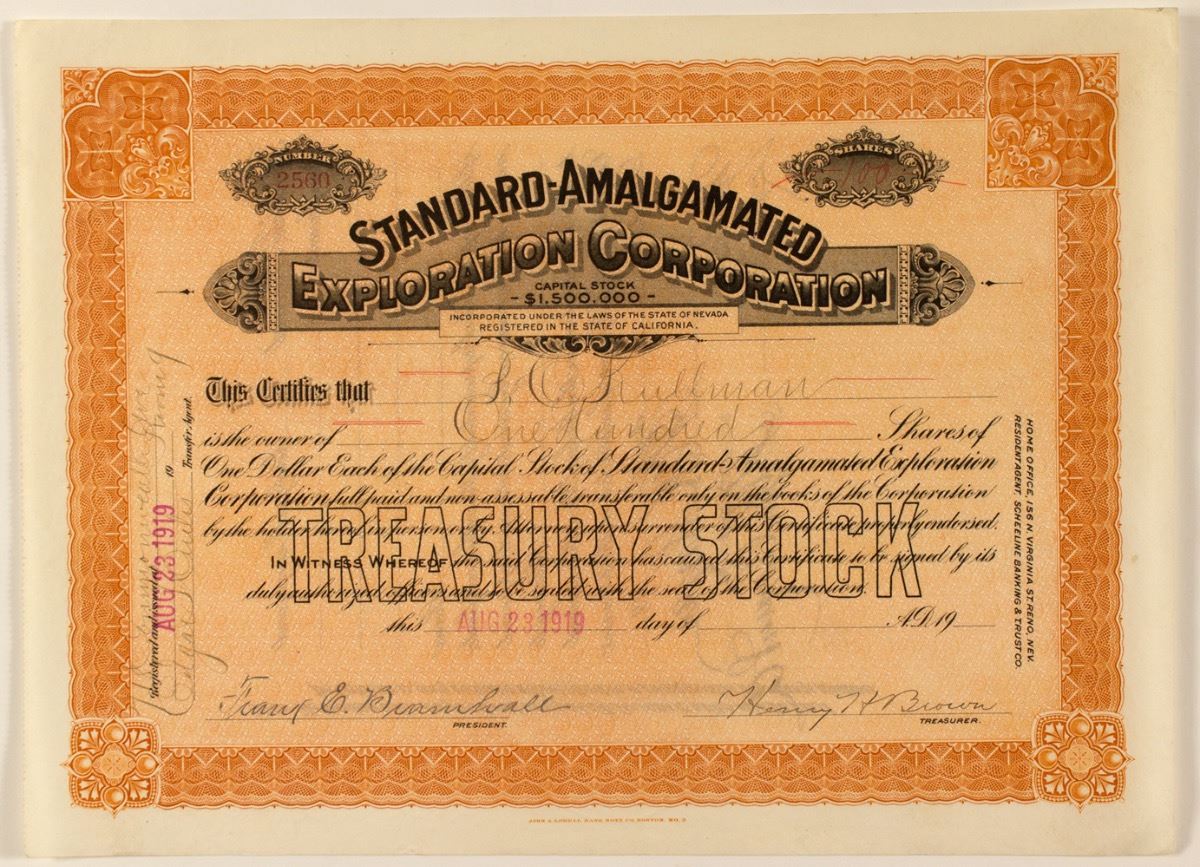 NUMBER
2560
SHARES
-100
STANDARD-AMALGAMATED
EXPLORATION CORPORATION
CAPITAL STOCK
- $1,500,000 -
INCORPORATED UNDER THE LAWS OF THE STATE OF NEVADA
REGISTERED IN THE STATE OF CALIFORNIA.
This Certifies that F. C. Kullman
is the owner of One Hundred Shares of
One Dollar Each of the Capital Stock of Standard-Amalgamated Exploration
Corporation full paid and non-assessable, transferable only on the books of the Corporation
by the holder hereof in person or by Attorney upon surrender of this Certificate properly endorsed.
TREASURY STOCK
IN WITNESS WHEREOF the said Corporation has caused this Certificate to be signed by its
duly authorized officers and to be sealed with the seal of the Corporation.
this AUG 23 1919 day of A.D. 19
Frank E. Bramhall
PRESIDENT.
Henry H Brown
TREASURER.
Registered and countersigned
AUG 23 1919
19
Transfer Agent.
HOME OFFICE, 156 N. VIRGINIA ST. RENO, NEV.
RESIDENT AGENT, SCHEELINE BANKING & TRUST CO.
JOHN A. LOWELL BANK NOTE CO. BOSTON. NO. 2